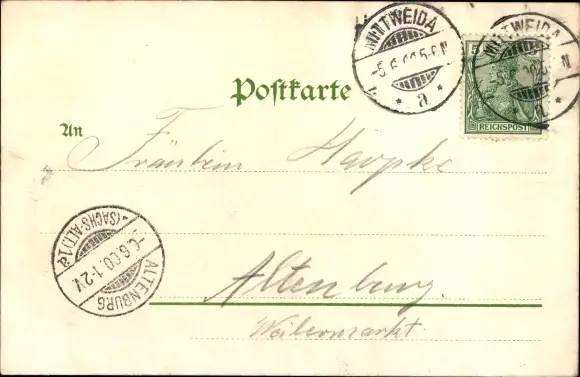 MITTWEIDA
-5.6.00.5-6N
* a *
MITTWEIDA
* a *
5
REICHSPOST
Postkarte
An
Fräulein Haupke
Altenburg
Weibermarkt
ALTENBURG
-6.6.00.1-2V
*(SACHS-ALT.)1a